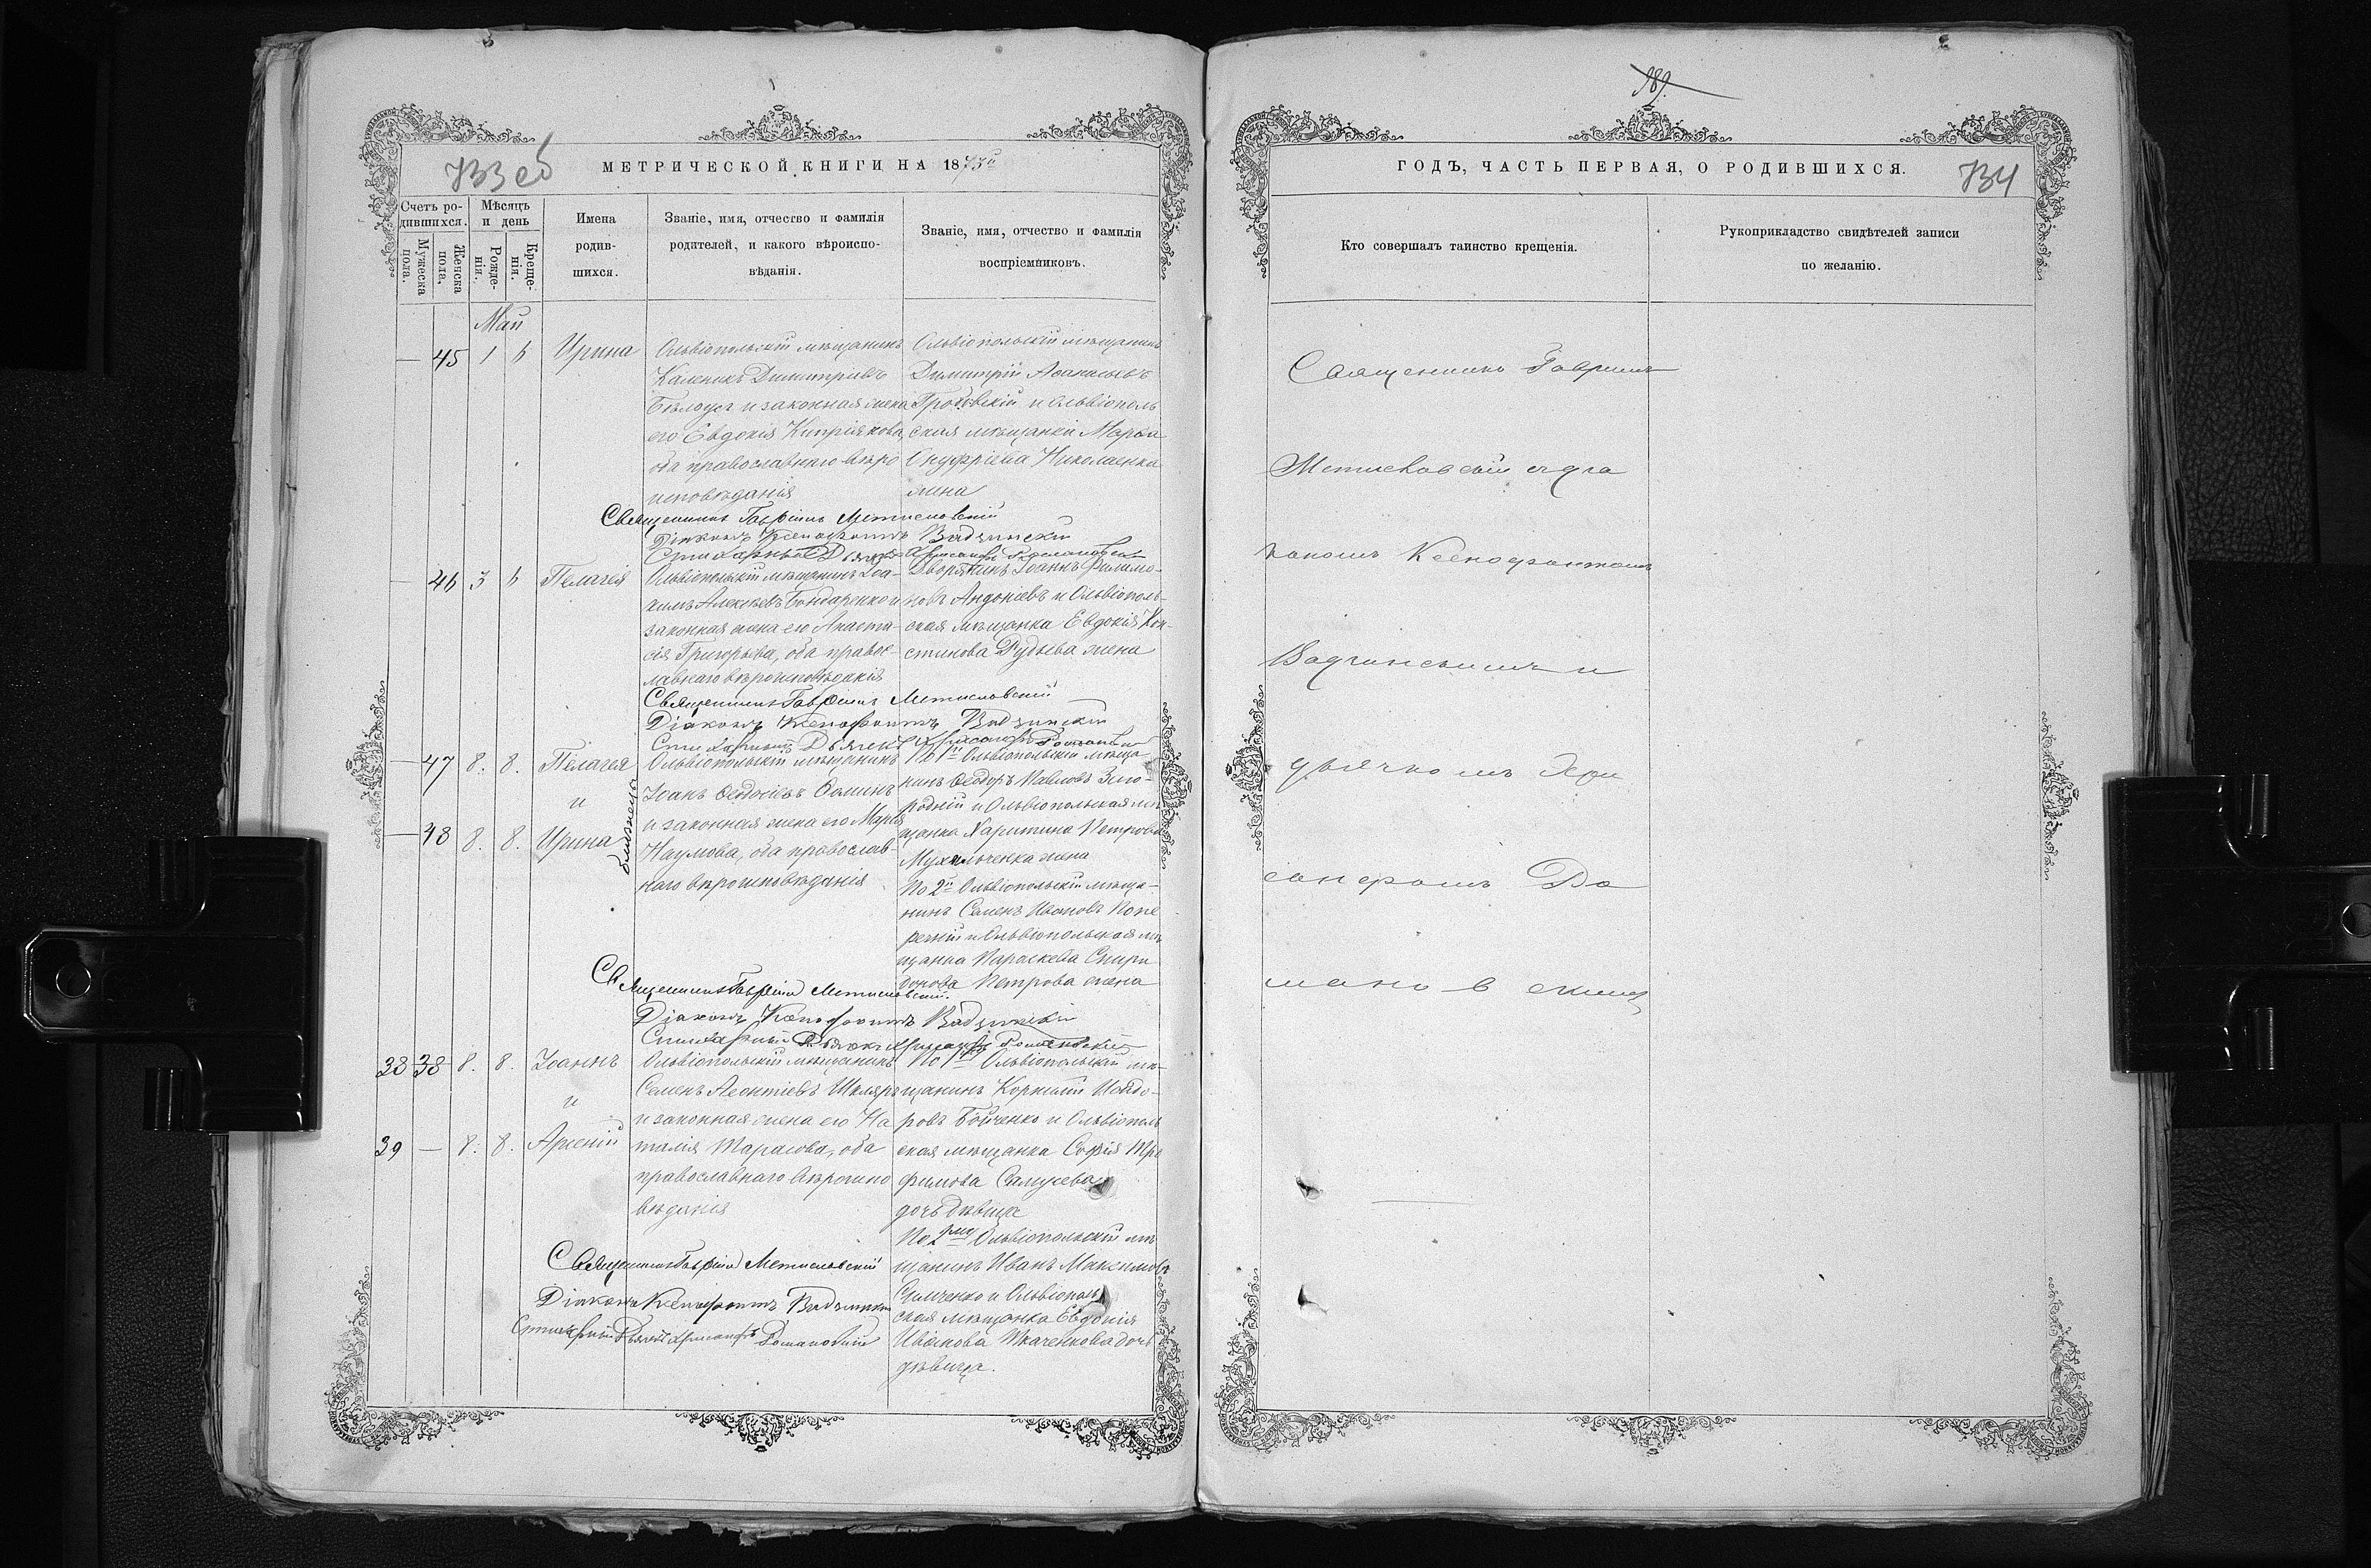 733 об
МЕТРИЧЕСКОЙ КНИГИ НА 1875й
Счетъ ро-
дившихся.
Мужеска
пола.
Женска
пола.
Мѣсяцъ
и день
Рожде-
нія.
Креще-
нія.
Имена
родив-
шихся.
Званіе, имя, отчество и фамилія
родителей, и какого вѣроиспо-
вѣданія.
Званіе, имя, отчество и фамилія
воспріемниковъ.
Май
— 45 1 6 Ирина
Ольвіопольскій мѣщанинъ
Каленикъ Димитріевъ
Бѣлоусъ и законная жена
его Евдокія Кипріянова,
оба православнаго вѣро
исповѣданія
Ольвіопольскій мѣщанинъ
Димитрій Аѳанасьевъ
и Ольвіополь
ская мѣщанка Марѳа
Онуфріева Николаенка
жена
Священникъ Гавріилъ Метиславскій
Діаконъ Ксенофонтъ Вадзинскій
Стихарный Дьячекъ Хрисанфъ Романовскій
— 46 3 6 Пелагея
Ольвіопольскій мѣщанинъ Іоа-
кимъ Алексѣевъ Бондаренко и
законная жена его Анаста-
сія Григорьева, оба правос-
лавнаго вѣроисповѣданія
Дворянинъ Іоаннъ Филимо-
новъ Андоніевъ и Ольвіополь-
ская мѣщанка Евдокія Кон-
стинова Рудыева жена
Священникъ Гавріилъ Метиславскій
Діаконъ Ксенофонтъ Вадзинскій
Стихарный Дьячекъ Хрисанфъ Романовскій
— 47 8. 8. Пелагея
и
— 48 8. 8. Ирина
близнецы
Ольвіопольскій мѣщанинъ
Іоанъ Ѳеодосіевъ Ѳоминъ
и законная жена его Марія
Наумова, оба православ-
наго вѣроисповѣданія
По 1й Ольвіопольскій мѣща-
нинъ Ѳеодоръ Павловъ Заго-
родній и Ольвіопольская мѣ
щанка Харитина Петрова
жена
По 2й Ольвіопольскій мѣща-
нинъ Семенъ Ивановъ Попе
речній и Ольвіопольская мѣ
щанка Параскева Спири
донова Петрова жена
Священникъ Гавріилъ Метиславскій.
Діаконъ Ксенофонтъ Вадзинскій
Стихарный Дьячекъ Хрисанфъ Романовскій
38 38 8. 8. Іоаннъ
и
39 — 8. 8. Арсеній
Ольвіопольскій мѣщанинъ
Семенъ Леонтіевъ Шкляръ
и законная жена его На
талія Тарасова, оба
православнаго вѣроиспо
вѣданія
По 1му Ольвіопольскій мѣ-
щанинъ Корнилій Исидо-
ровъ Бойченко и Ольвіополь
ская мѣщанка Софія Тро
фимова Самусева
дочь дѣвица
По 2му Ольвіопольскій мѣ
щанинъ Иванъ Максимовъ
и Ольвіополь
ская мѣщанка Евдокія
Иванова Ткаченкова дочь
дѣвица.
Священникъ Гавріилъ Метиславскій
Діаконъ Ксенофонтъ Вадзинскій
Стихарный Дьячекъ Хрисанфъ Романовскій
989.
ГОДЪ, ЧАСТЬ ПЕРВАЯ, О РОДИВШИХСЯ.
734
Кто совершалъ таинство крещенія.
Рукоприкладство свидѣтелей записи
по желанію.
Священникъ Гавріилъ
Метиславскій съ діа
кономъ Ксенофонтомъ
Вадзинскимъ и
дьячкомъ Хри
санфомъ Ро
мановскимъ